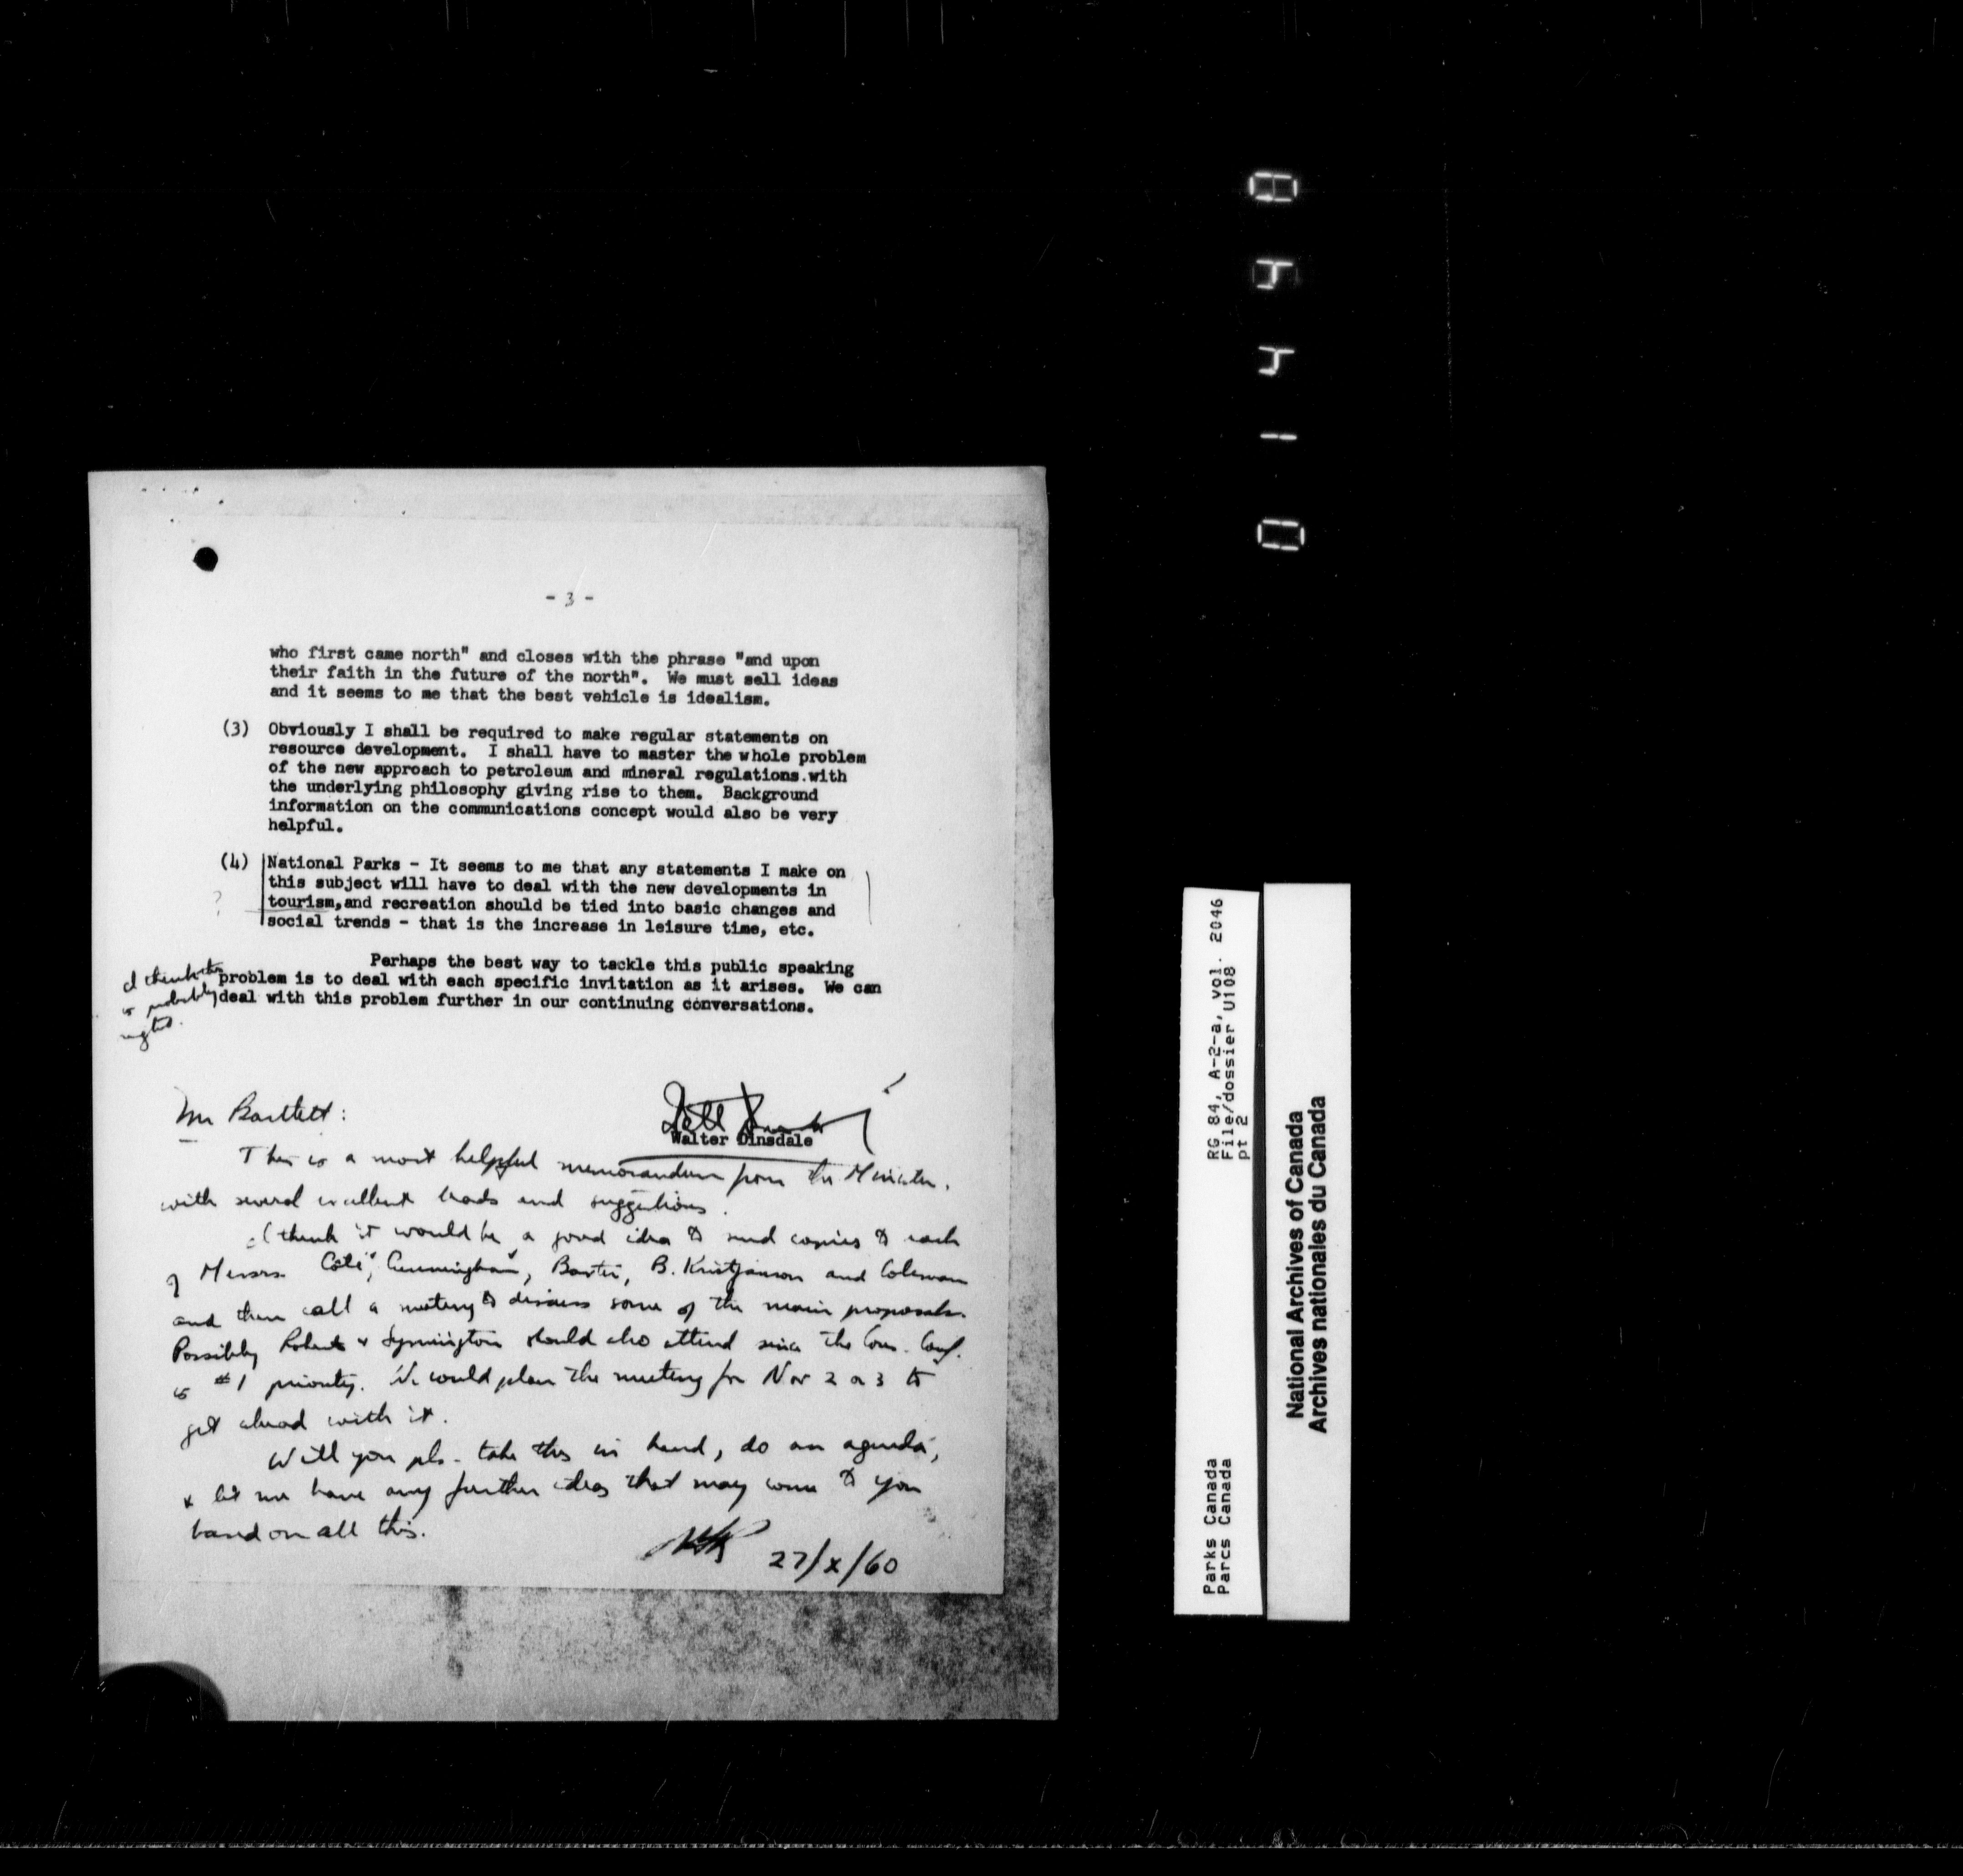 - 3 -
who first came north" and closes with the phrase "and upon
their faith in the future of the north". We must sell ideas
and it seems to me that the best vehicle is idealism.
(3) Obviously I shall be required to make regular statements on
resource development. I shall have to master the whole problem
of the new approach to petroleum and mineral regulations.with
the underlying philosophy giving rise to them. Background
information on the communications concept would also be very
helpful.
(4) National Parks - It seems to me that any statements I make on
this subject will have to deal with the new developments in
? tourism,and recreation should be tied into basic changes and
social trends - that is the increase in leisure time, etc.
Perhaps the best way to tackle this public speaking
problem is to deal with each specific invitation as it arises. We can
deal with this problem further in our continuing conversations.
I think this
is probably
right.
Walter Dinsdale
Mr Bartlett:
This is a most helpful memorandum from the Minister,
with several excellent leads and suggestions.
I think it would be a good idea to send copies to each
of Messrs. Côté, Cunningham, Baxter, B. Kristjanson and Coleman
and then call a meeting to discuss some of the main proposals.
Possibly Roberts & Symington should also attend since the Cons. Conf.
is #1 priority. We could plan the meeting for Nov 2 or 3 to
get ahead with it.
Will you pls. take this in hand, do an agenda,
& let me have any further ideas that may come to you
based on all this.
27/X/60
RG 84, A-2-a, vol. 2046
File/dossier U108
pt 2
Parks Canada
Parcs Canada
National Archives of Canada
Archives nationales du Canada